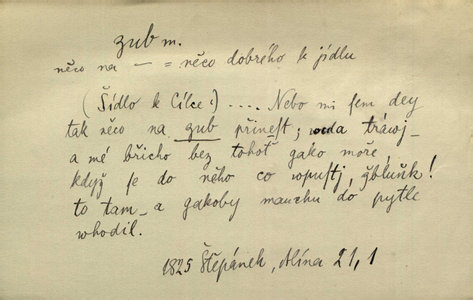 zub m.
něco na — = něco dobrého k jídlu
(Šídlo k Cílce:) .... Nebo mi sem dey
tak něco na zub přinest; woda tráwj
a mé břicho bez tohoť gako moře,
když se do něho co wpustj, žbluňk!
to tam – a gakoby mauchu do pytle
whodil.
1825 Štěpánek, Alína 21, 1